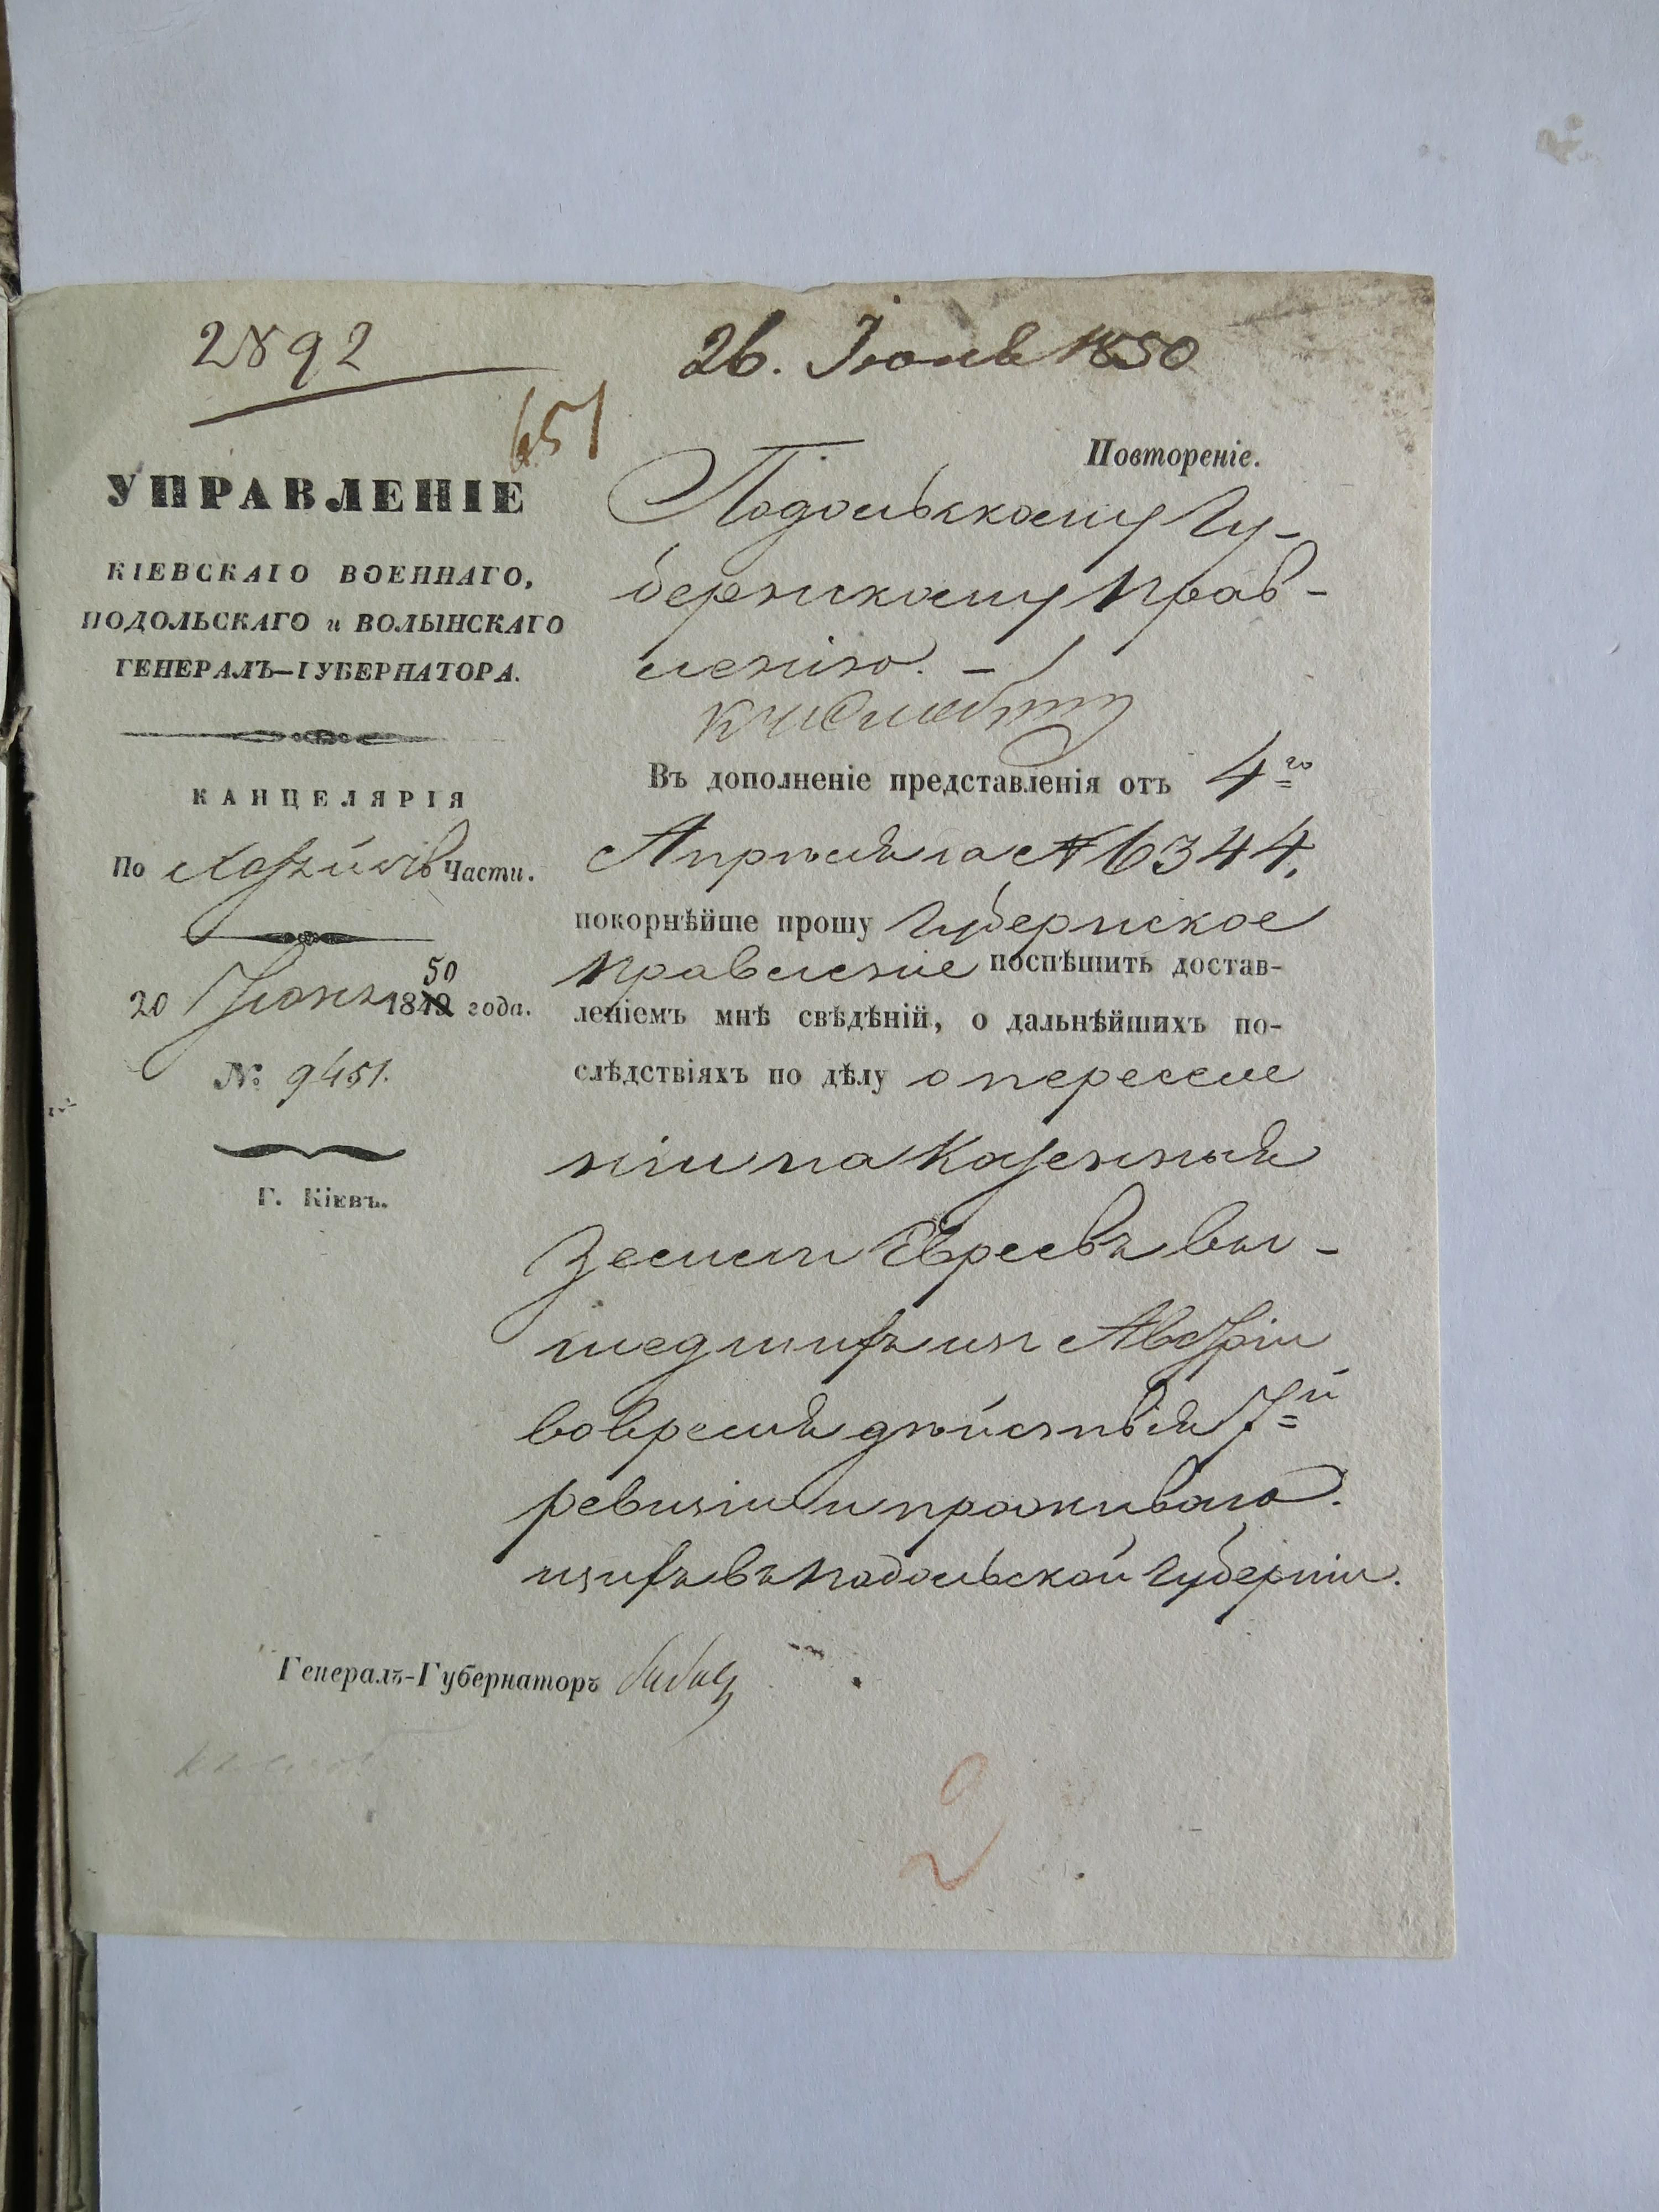 2892
26. Іюня 1850
651
УПРАВЛЕНІЕ
КІЕВСКАГО ВОЕННАГО,
ПОДОЛЬСКАГО и ВОЛЫНСКАГО
ГЕНЕРАЛЪ-ГУБЕРНАТОРА.
КАНЦЕЛЯРІЯ
По Части.
20 Іюня 1849 50 года.
№ 9451.
Г. Кіевъ.
Повтореніе.
Подольскому Гу-
бернскому Прав-
ленію. -
Въ дополненіе представленія отъ 4го
Апрѣля за № 6344,
покорнѣйше прошу Губернское
Правленіе поспѣшить достав-
леніемъ мнѣ свѣдѣній, о дальнѣйшихъ по-
слѣдствіяхъ по дѣлу о переселе
ніи на Казенныя
Земли Евреевъ вы-
шедшихъ изъ Австріи
во время дѣйствія 7й
ревизіи и прожываю.
щихъ въ Подольской Губерніи.
Генералъ-Губернаторъ
2